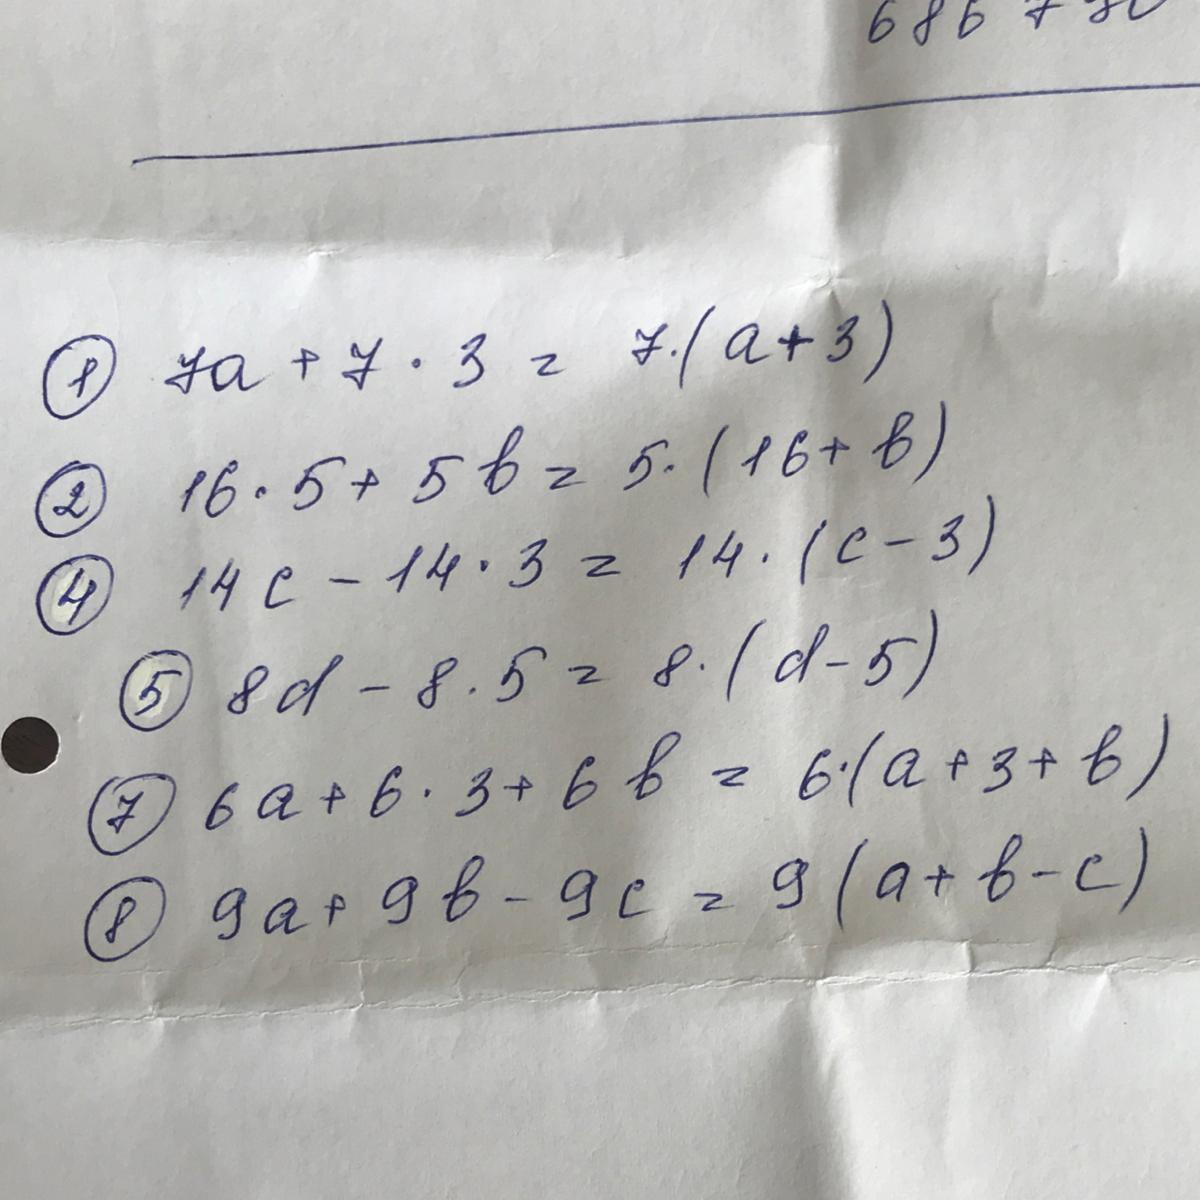 ① 7a + 7 · 3 = 7·(a+3)
② 16·5+5b = 5·(16+b)
④ 14c - 14·3 = 14·(c-3)
⑤ 8d - 8·5 = 8·(d-5)
⑦ 6a+6·3+6b = 6·(a+3+b)
⑧ 9a+9b-9c = 9(a+b-c)